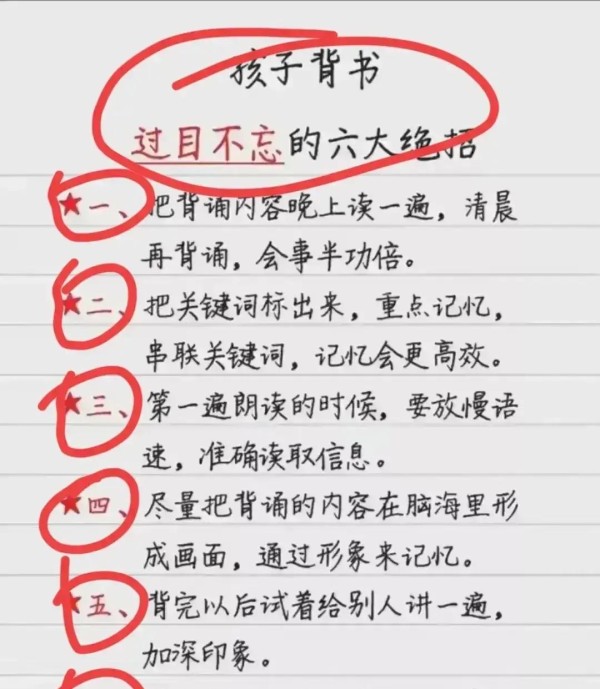 孩子背书
过目不忘的六大绝招
★一、把背诵内容晚上读一遍，清晨
再背诵，会事半功倍。
★二、把关键词标出来，重点记忆，
串联关键词，记忆会更高效。
★三、第一遍朗读的时候，要放慢语
速，准确读取信息。
★四、尽量把背诵的内容在脑海里形
成画面，通过形象来记忆。
★五、背完以后试着给别人讲一遍，
加深印象。